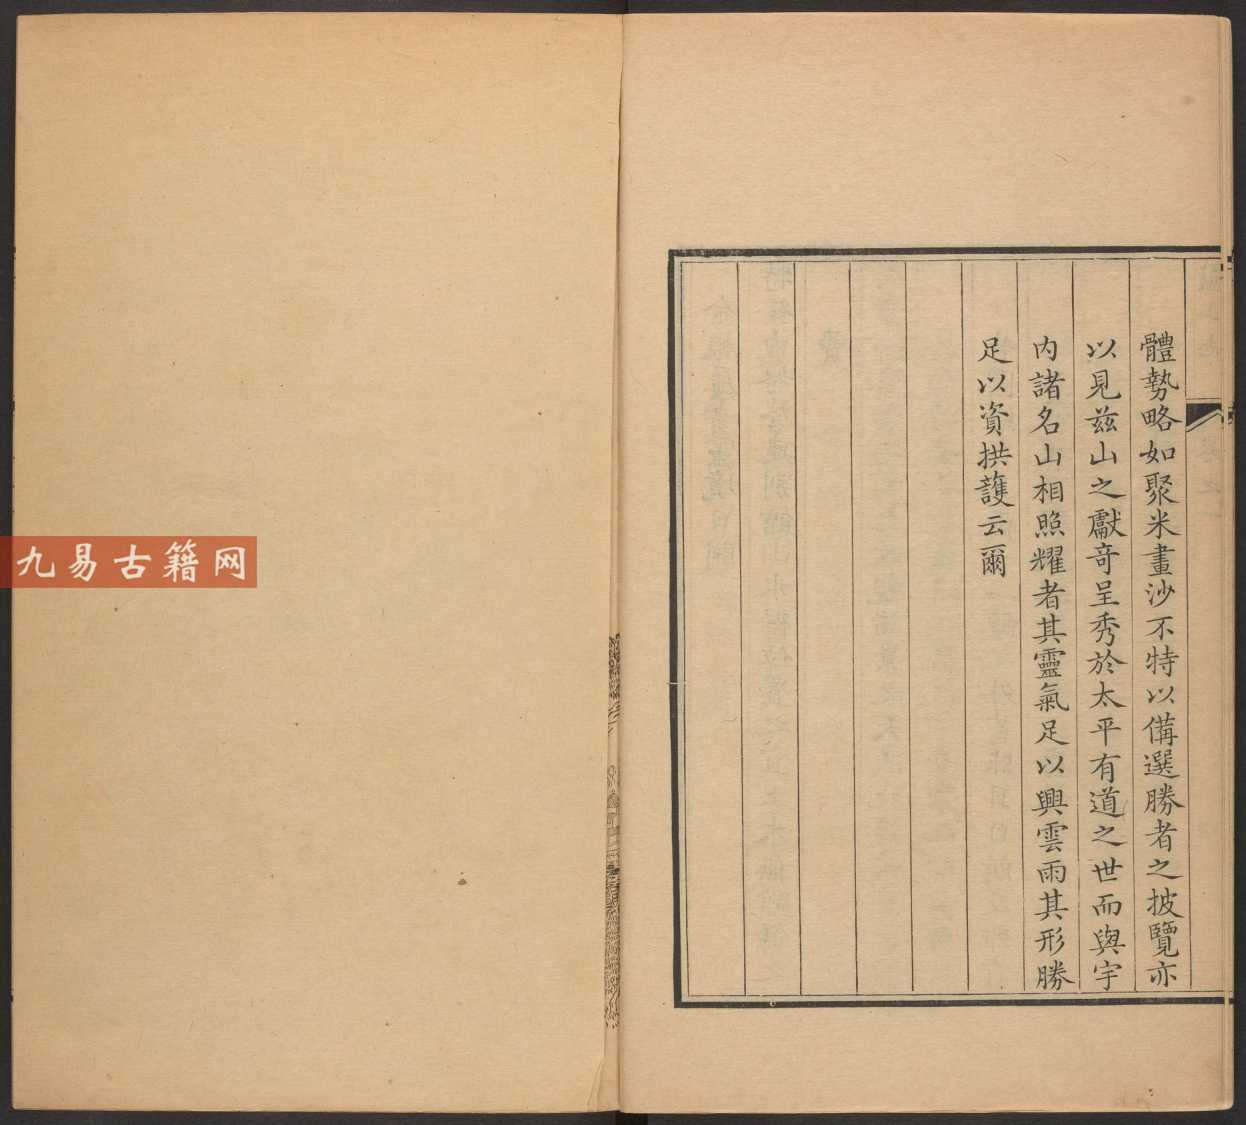 體勢略如聚米畫沙不特以備選勝者之披覽亦
以見茲山之獻奇呈秀於太平有道之世而與宇
内諸名山相照耀者其靈氣足以興雲雨其形勝
足以資拱護云爾
九易古籍网